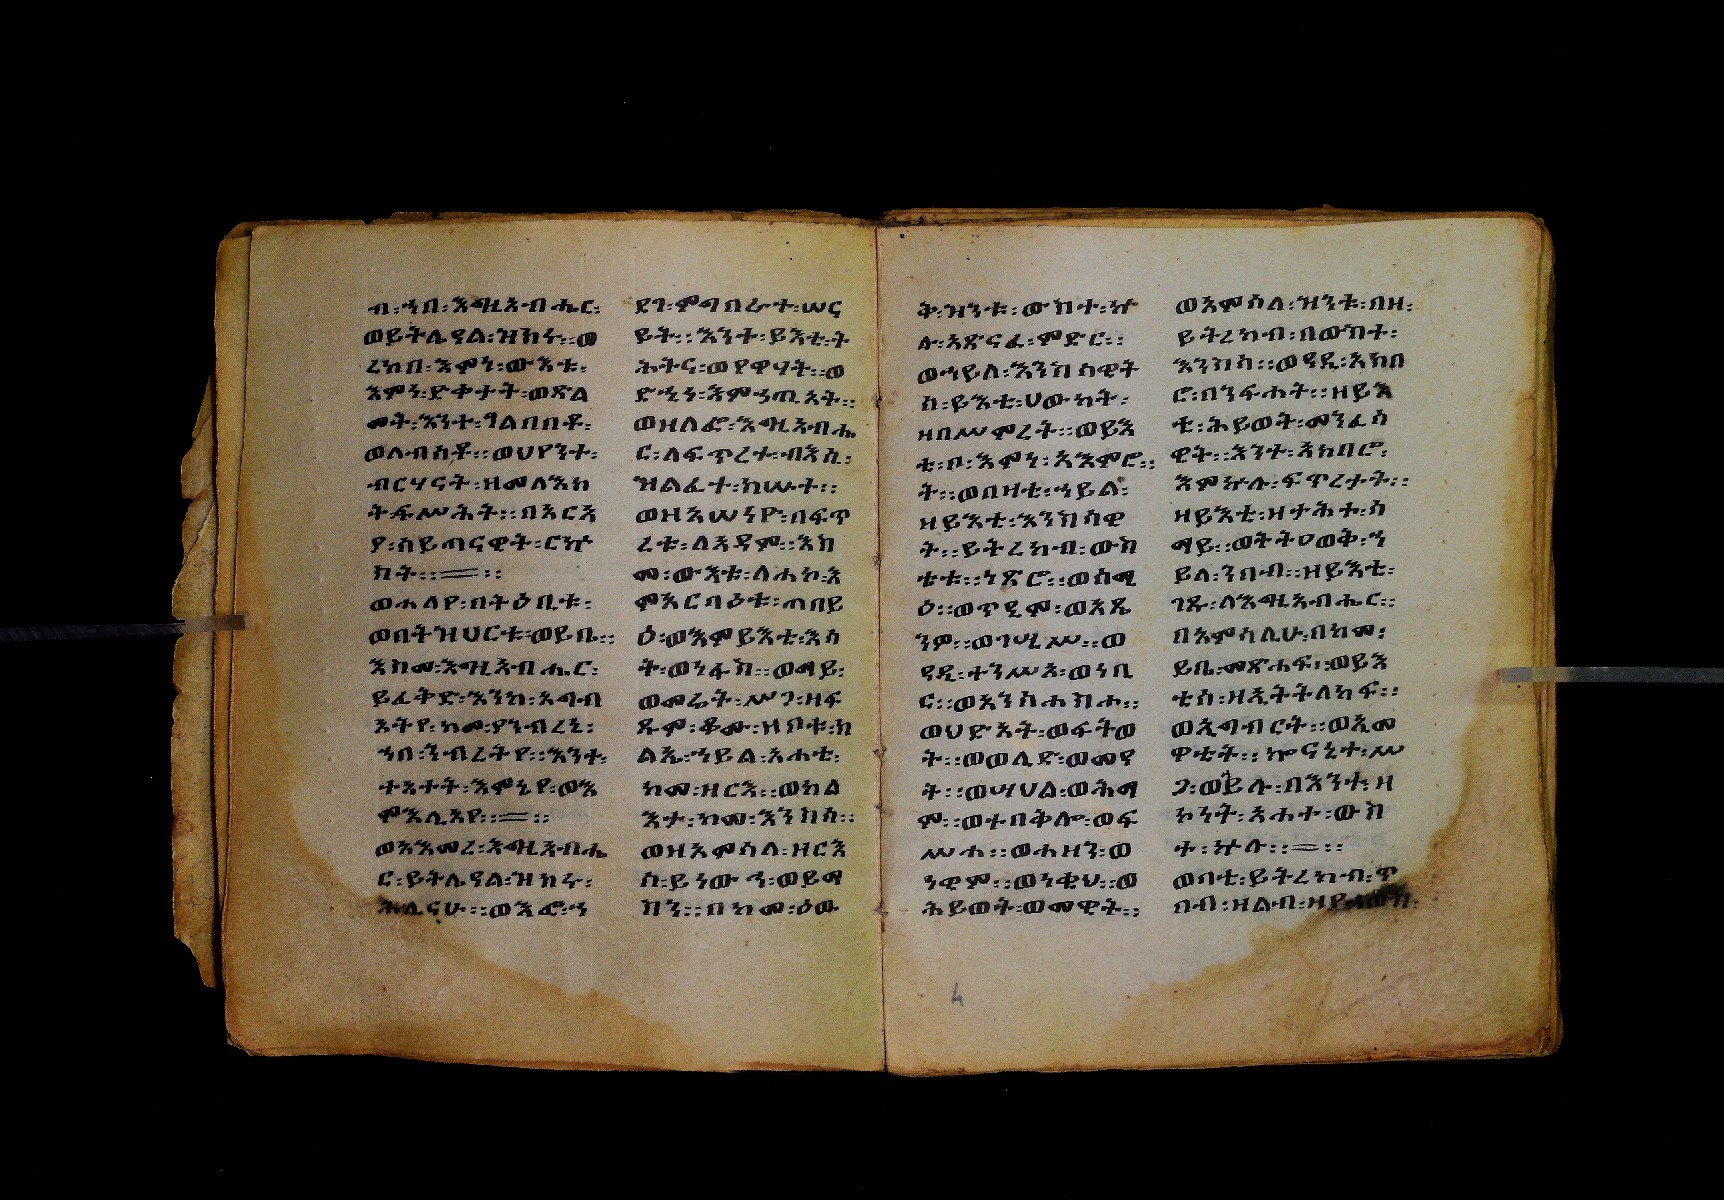 ብ፡ኀበ፡እግዚአብሔር፡
ወይትሌዓል፡ዝክሩ።ወ
ረከበ፡እምነ፡ውእቱ፡
እምነ፡ድቀታት፡ወጽል
መት፡እንተ፡ገልበቦቶ፡
ወለብሰቶ።ወህየንተ፡
ብርሃናት፡ዘመልእክ
ትፋሥሕት።በአርእ
ያ፡ሰይጣናዊት፡ርኵ
ስት።
ወሐለየ፡በትዕቢቱ፡
ወበትዝህርቱ፡ወይቤ።
እስመ፡እግዚአብሔር፡
ይፈቅድ፡እንከ፡እግብ
አትየ፡ከመ፡ያንብረኒ፡
ኀበ፡ንብረትየ።እንተ፡
ተአተት፡እምኔየ፡ወእ
ምእሊአየ።
ወአእመረ፡እግዚአብሔ
ር፡ይትሌዓል፡ዝክሩ፡
ሕሊናሁ።ወእፎ፡ኀ
ደገ፡ምግበራተ፡ሠና
ይት።እንተ፡ይእቲ፡ት
ሕትና፡ወየዋሃት።ወ
ድኅነ፡እምኀጢአት።
ወዘለፎ፡እግዚአብሔ
ር፡ለፍጥረተ፡ብእሲ፡
ዝልፈተ፡ክሡተ።
ወዘአሠነዮ፡በፍጥ
ረቱ፡ለአዳም።እስ
መ፡ውእቱ፡ለሐኮ፡እ
ምአርባዕቱ፡ጠበይ
ዕ፡ወእምይእቲ፡እሳ
ት፡ወነፋስ።ወማይ፡
ወመሬት፡ሥጋ፡ዘፍ
ጹም፡ቆሙ፡ዘቦቱ፡ከ
ልኤ፡ኀይል፡አሐቲ፡
ከመ፡ዘርእ።ወካል
እታ፡ከመ፡እንስሳ።
ወዘአምሳለ፡ዘርእ
ሰ፡ይነውኅ፡ወይማ
ስን።በከመ፡ዕፀ
ቅ፡ዝንቱ፡ውስተ፡ኵ
ሉ፡አጽናፈ፡ምድር።
ወኀይለ፡እንስሳዊት
ሰ፡ይእቲ፡ሀውከት፡
ዘበሥምረት።ወይእ
ቲ፡ቦ፡እምነ፡አእምሮ።
ት።ወበዛቲ፡ኀይል፡
ዘይእቲ፡እንስሳዊ
ት።ይትረከብ፡ውስ
ቴቱ።ነጽሮ።ወሰሚ
ዕ።ወጥዒም።ወአጼ
ንዎ።ወገሢሥ።ወ
ዓዲ፡ተንሥአ፡ወነቢ
ር።ወአንሰሐስሐ።
ወህድአት፡ወፍትወ
ት።ወወሊድ፡ወመዓ
ት።ወሣህል፡ወሕማ
ም።ወተበቅሎ፡ወፍ
ሥሐ።ወሐዘን፡ወ
ንዊም።ወነቂህ።ወ
ሕይወት፡ወመዊት።
ወእምሳለ፡ዝንቱ፡በዘ፡
ይትረከብ፡በውስተ፡
እንስሳ።ወዓዲ፡አክበ
ሮ፡በንፍሐት።ዘይእ
ቲ፡ሕይወት፡መንፈሳ
ዊት።እንተ፡አክበሮ፡
እምኵሉ፡ፍጥረታት።
ዘይእቲ፡ዘታሕተ፡ሰ
ማይ።ወትትዐወቅ፡ኀ
ይለ፡ነበብ።ዘይእቲ፡
ገጹ፡ለእግዚአብሔር።
በአምሳሊሁ፡በከመ፡
ይቤ፡መጽሐፍ።ወይእ
ቲሰ፡ዘኢትትለከፍ።
ወኢግብርት።ወኢመ
ዋቲት።ኰናኒተ፡ሥ
ጋ፡ወይሉ፡በእንተ፡ዘ
ኮነት፡አሐተ፡ውስ
ተ፡ኵሉ።
ወባቲ፡ይትረከብ፡ጥ
በብ፡ዘልብ፡